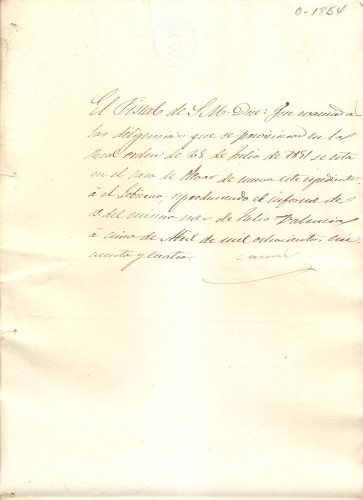 0-1854
El Fiscal de S.M. Dice: Que evacuadas
las diligencias que se previenen en la
real orden de 28 de Julio de 1851 se está
en el caso de elevar de nuevo este expediente
á el Gobierno, reproduciendo el informe de
del mismo mes de Julio Valencia
á cinco de Abril de mil ochocientos cin
cuenta y cuatro.